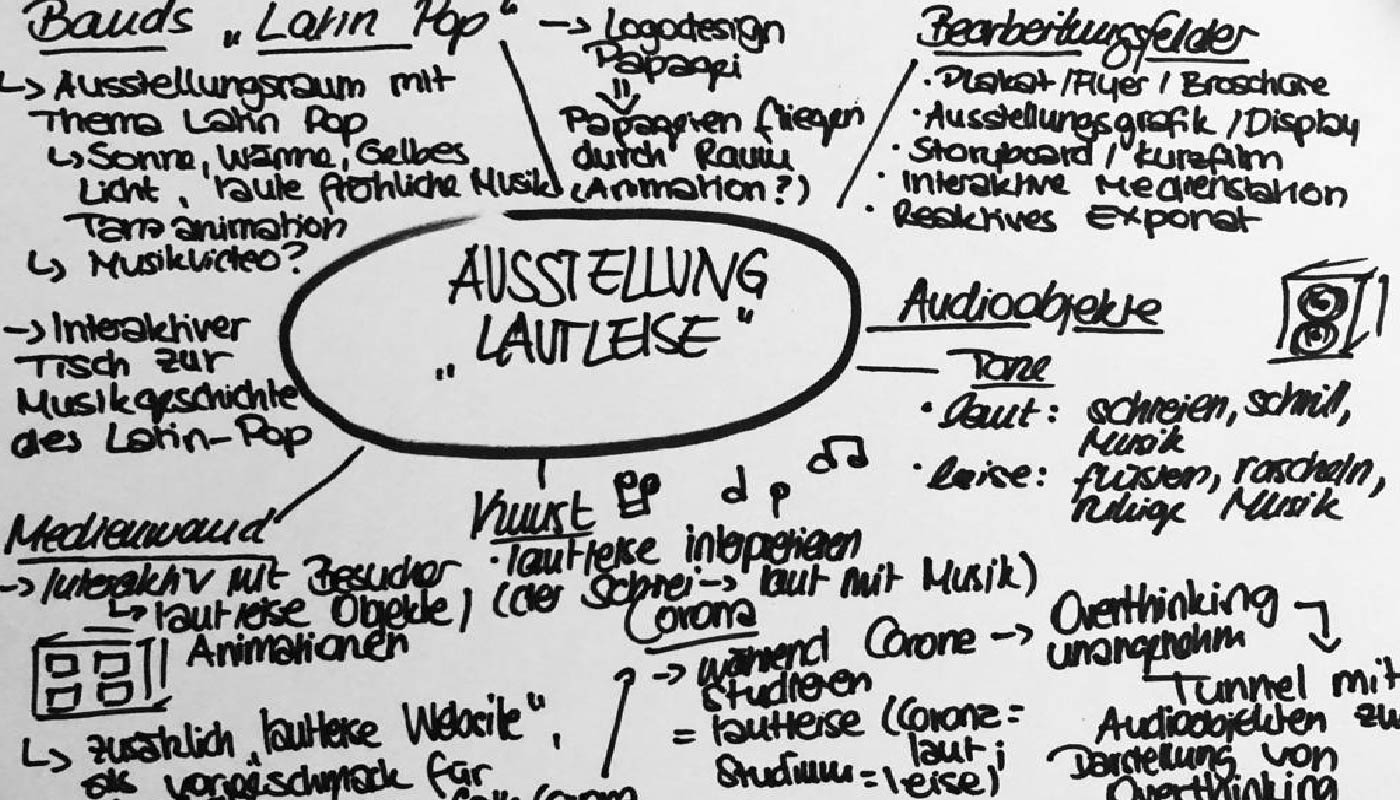 Bands „Latin Pop“
↳ Ausstellungsraum mit
Thema Latin Pop
↳ Sonne, Wärme, Gelbes
Licht, laute fröhliche Musik
Tanzanimation
↳ Musikvideo?
-> Interaktiver
Tisch zur
Musikgeschichte
des Latin-Pop
-> Logodesign
Papagei
Papageien fliegen
durch Raum
(Animation?)
Bearbeitungsfelder
· Plakat / Flyer / Broschüre
· Ausstellungsgrafik / Display
· Storyboard / Kurzfilm
· Interaktive Medienstation
· Reaktives Exponat
AUSSTELLUNG
„LAUTLEISE“
Audioobjekte
Töne
· laut: schreien, schrill,
Musik
· leise: flüstern, rascheln,
ruhige Musik
Medienwand
-> Interaktiv mit Besucher
↳ lautleise Objekte /
Animationen
↳ zusätzlich „lautleise Website“,
als vorgeschmack für
Kunst
· lautleise interpretieren
(der Schrei -> laut mit Musik)
Corona
-> während Corona ->
Studieren
= lautleise (Corona =
laut;
Studium = leise)
Overthinking
unangenehm
Tunnel mit
Audioobjekten zu
Darstellung von
Overthinking